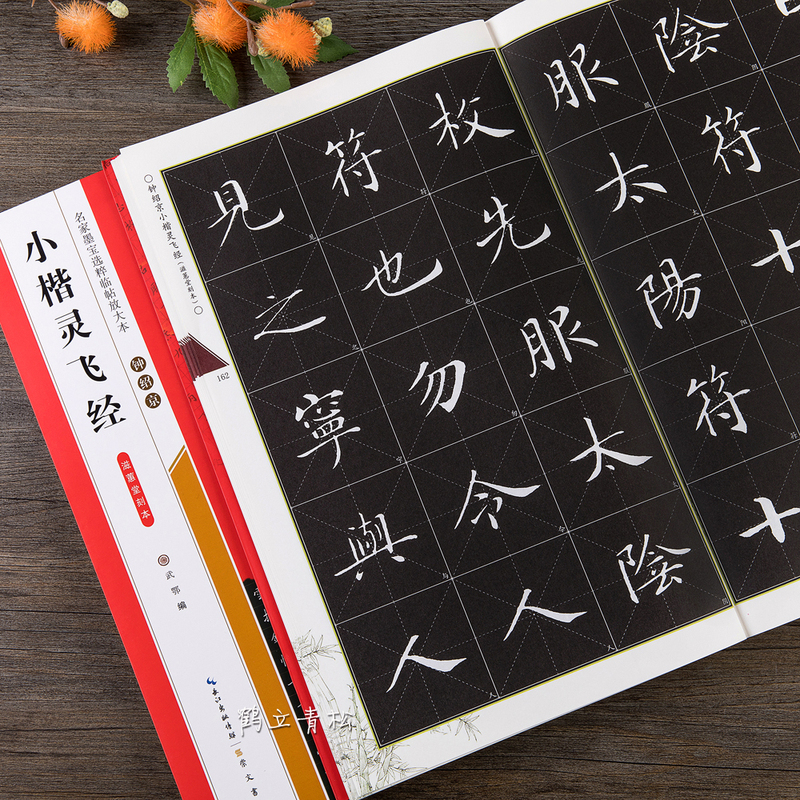 名家墨宝选粹临帖放大本
小楷灵飞经
钟绍京
滋蕙堂刻本
武鄂編
长江出版传媒
崇文書
钟绍京小楷灵飞经(滋蕙堂刻本)
162
陰符十
服太陽符十
枚先服太陰
符也勿令人
見之寧與人
鹤立青松